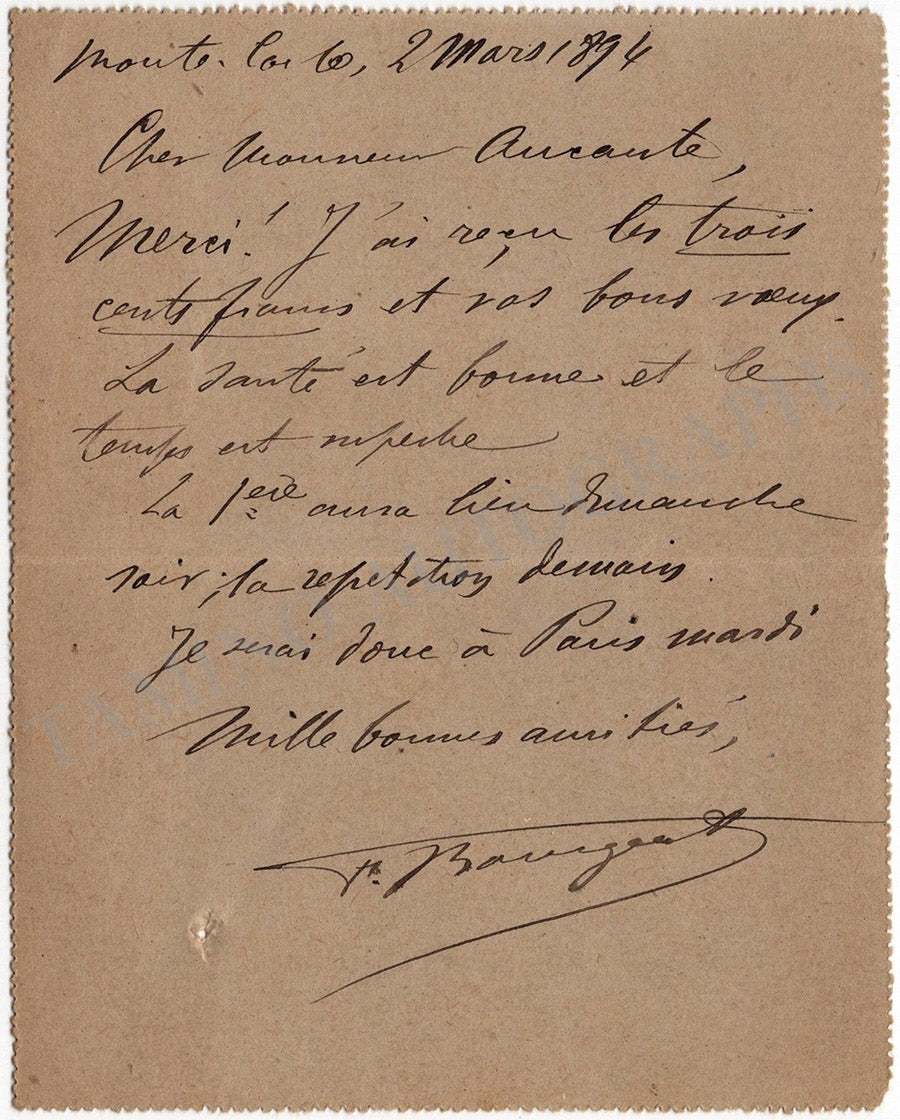 Monte-Carlo, 2 Mars 1894
Cher Monsieur Aucante,
Merci! J'ai reçu les trois
cents francs et vos bons vœux.
La santé est bonne et le
temps est superbe
La 1ère aura lieu dimanche
soir; la repetition demain.
Je serai donc à Paris mardi
Mille bonnes amitiés,
Bourgeat
TAMINO AUTOGRAPHS